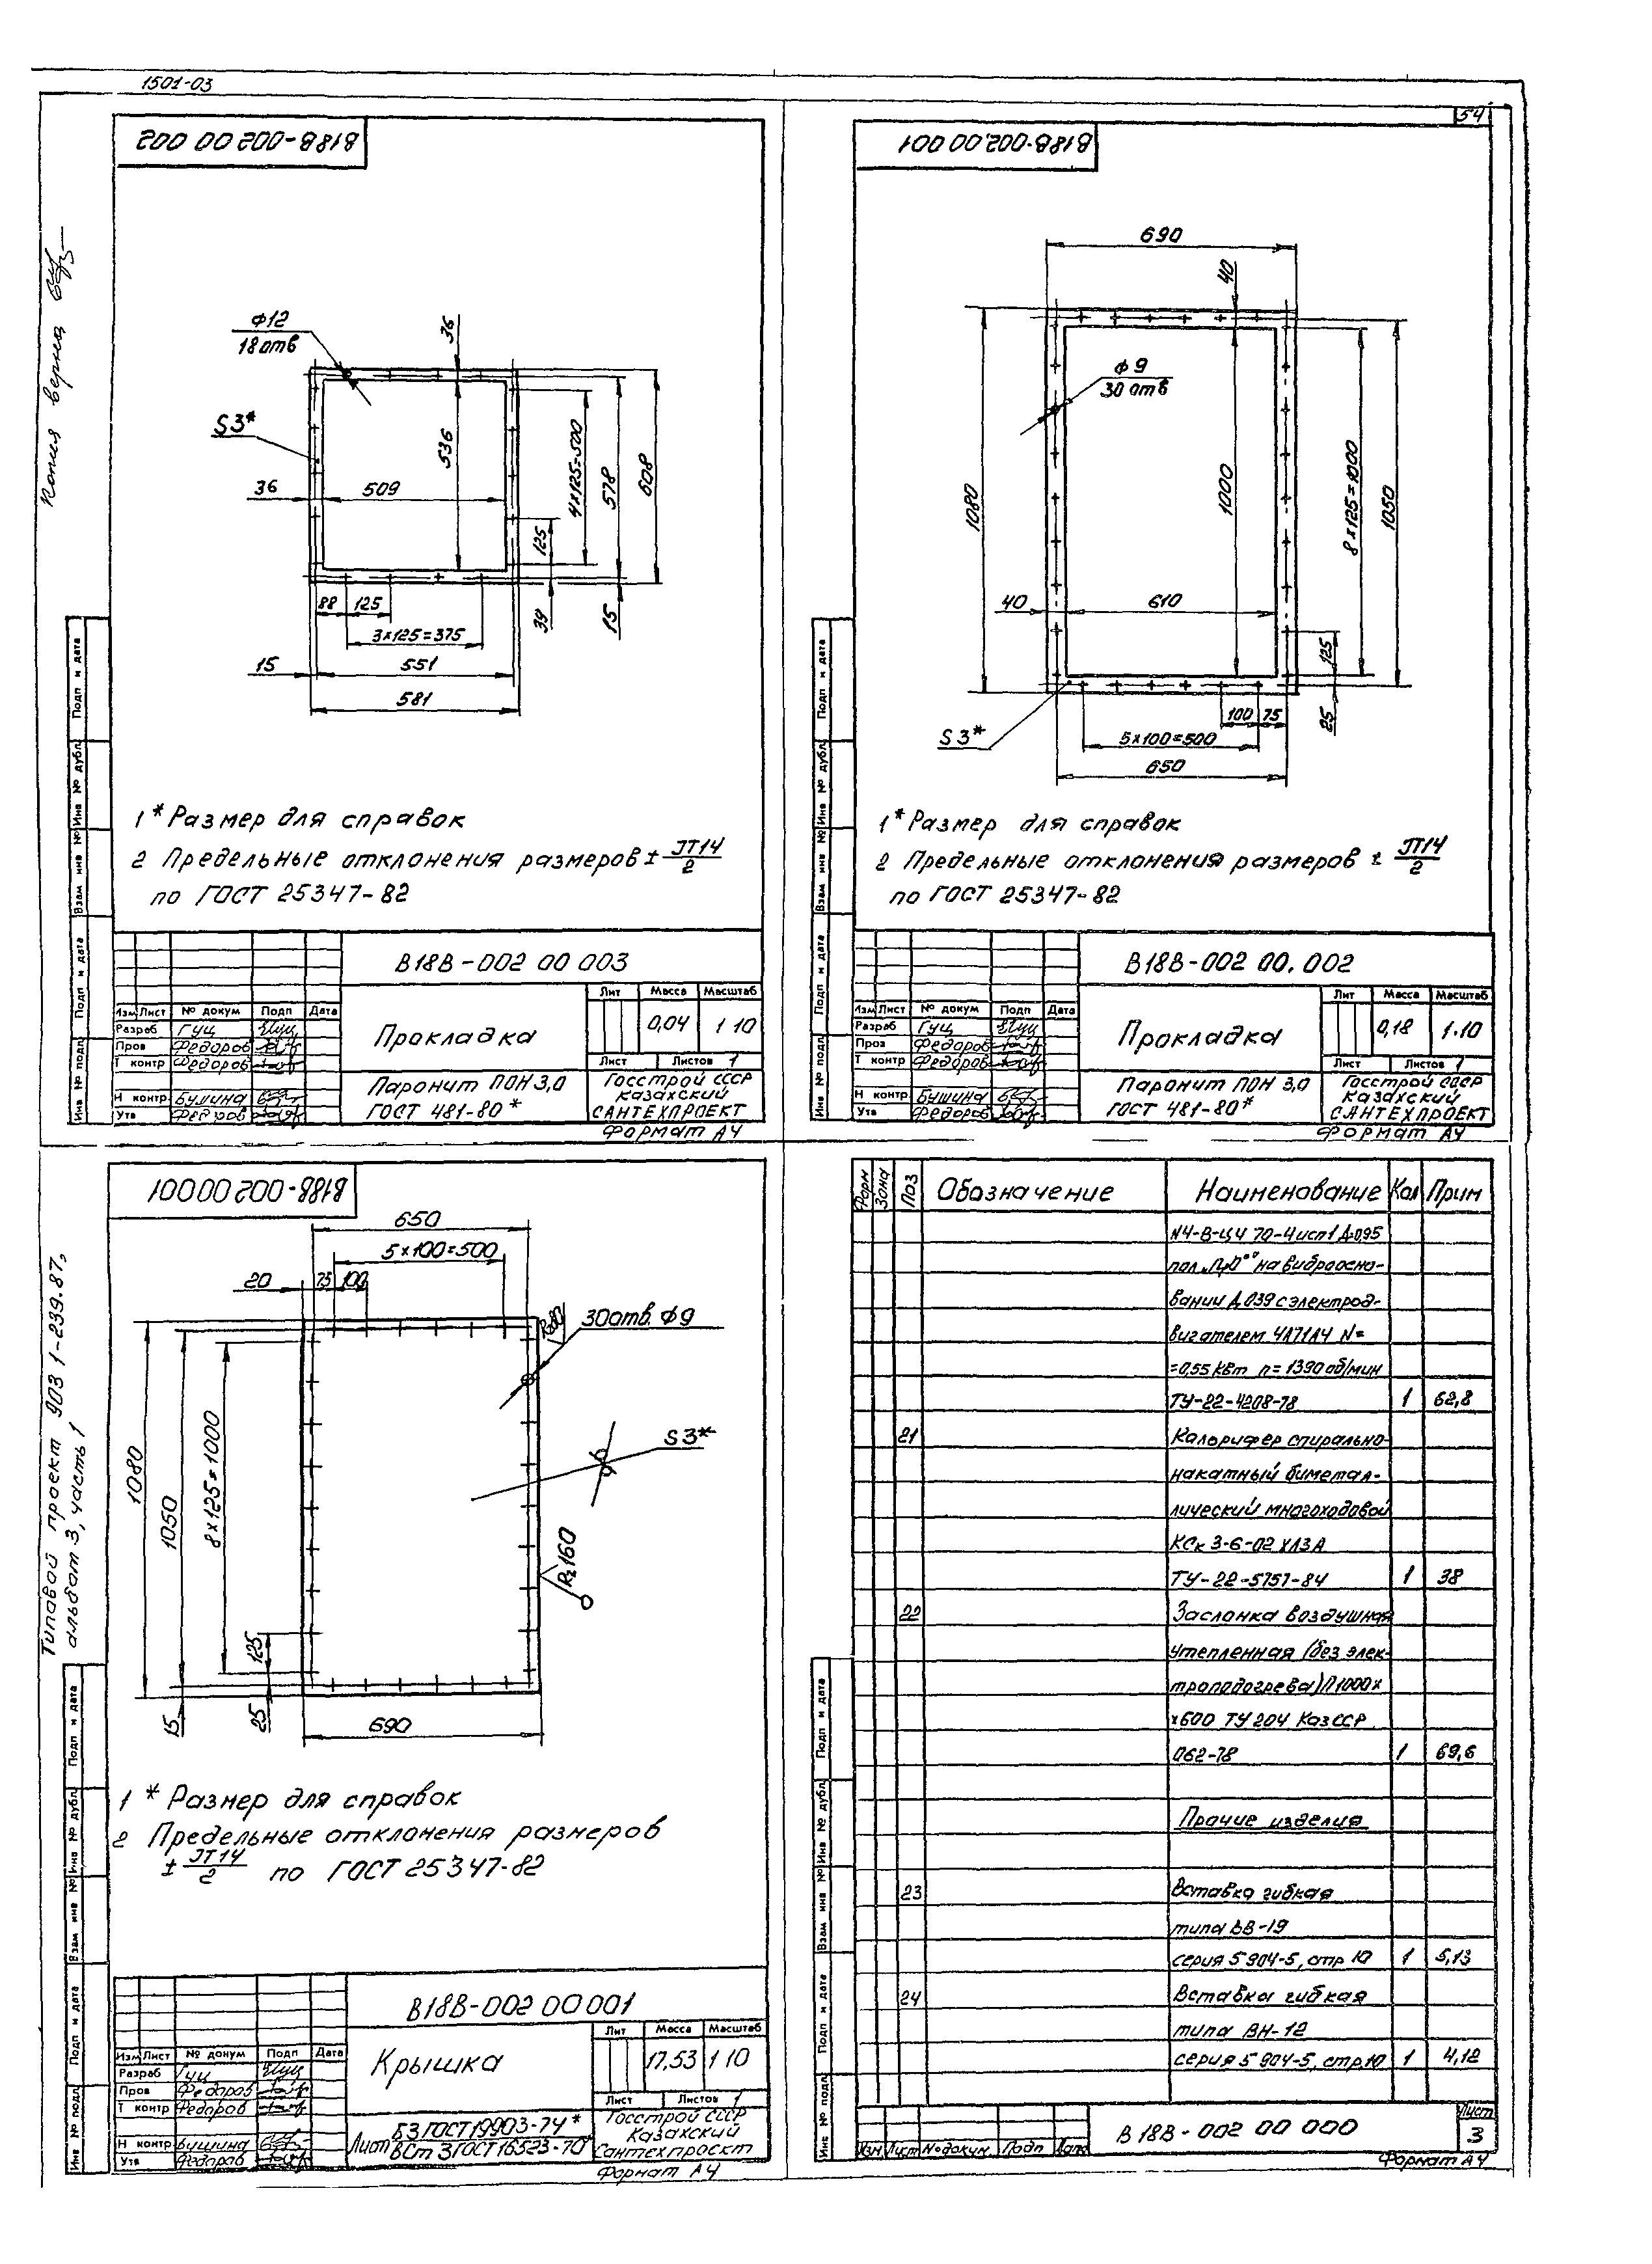 1501-03
54
В18В-002 00 002
Копия верна
Ф12
18 отв
36
S3*
36
509
536
4×125=500
578
608
125
39
15
88
125
3×125=375
15
551
581
1 * Размер для справок
2 Предельные отклонения размеров ± JT14/2
по ГОСТ 25347-82
В18В-002 00 003
Прокладка
Лит Масса Масштаб
0,04 1 10
Лист Листов 1
Изм Лист № докум Подп Дата
Разраб Гуц
Пров Федоров
Т контр Федоров
Н контр Бушина
Утв Федоров
Паронит ПОН 3,0
ГОСТ 481-80*
Госстрой СССР
Казахский
САНТЕХПРОЕКТ
Формат А4
Подп и дата
Инв № дубл
Взам инв №
Подп и дата
Инв № подл
В18В-002.00 001
690
40
Ф9
30 отв
1080
1000
8×125=1000
1050
40
610
125
25
100 75
S3*
5×100=500
650
1* Размер для справок
2 Предельные отклонения размеров ± JT14/2
по ГОСТ 25347-82
В18В-002 00.002
Прокладка
Лит Масса Масштаб
0,18 1·10
Лист Листов 1
Изм Лист № докум Подп Дата
Разраб Гуц
Пров Федоров
Т контр Федоров
Н контр Бушина
Утв Федоров
Паронит ПОН 3,0
ГОСТ 481-80*
Госстрой СССР
Казахский
САНТЕХПРОЕКТ
Формат А4
Подп и дата
Инв № дубл
Взам инв №
Подп и дата
Инв № подл
В18В-002 00 001
Типовой проект 903 1-239.87,
альбом 3, часть 1
650
5×100=500
20 75 100
Rz80
30отв. Ф9
S3*
Rz160
1080
1050
8×125=1000
125
15
25
690
1 * Размер для справок
2 Предельные отклонения размеров
± JT14/2 по ГОСТ 25347-82
В18В-002 00 001
Крышка
Лит Масса Масштаб
17,53 1 10
Лист Листов 1
Изм Лист № докум Подп Дата
Разраб Гуц
Пров Федоров
Т контр Федоров
Н контр Бушина
Утв Федоров
Лист Б3 ГОСТ 19903-74*
ВСт 3 ГОСТ 16523-70*
Госстрой СССР
Казахский
Сантехпроект
Формат А4
Подп и дата
Инв № дубл
Взам инв №
Подп и дата
Инв № подл
Форм Зона Поз Обозначение Наименование Кол Прим
N4-В-Ц4 70-4исп1 Д-095
пол „Пр0°" на виброосно-
вании Д039 с электрод-
вигателем 4А71А4 N=
=0,55 кВт n=1390 об/мин
ТУ-22-4208-78 1 62,8
21 Калорифер спирально-
накатный биметал-
лический многоходовой
КСк 3-6-02 ХЛ3А
ТУ-22-5757-84 1 38
22 Заслонка воздушная
утепленная (без элек-
троподогрева) П1000×
×600 ТУ 204 КазССР
062-78 1 69,6
Прочие изделия
23 Вставка гибкая
типа ВВ-19
серия 5 904-5, стр 10 1 5,13
24 Вставка гибкая
типа ВН-12
серия 5 904-5, стр.10 1 4,12
Изм Лист № докум. Подп Дата
В 18В - 002 00 000
Лист
3
Формат А4
Подп и дата
Инв № дубл
Взам инв №
Подп и дата
Инв № подл